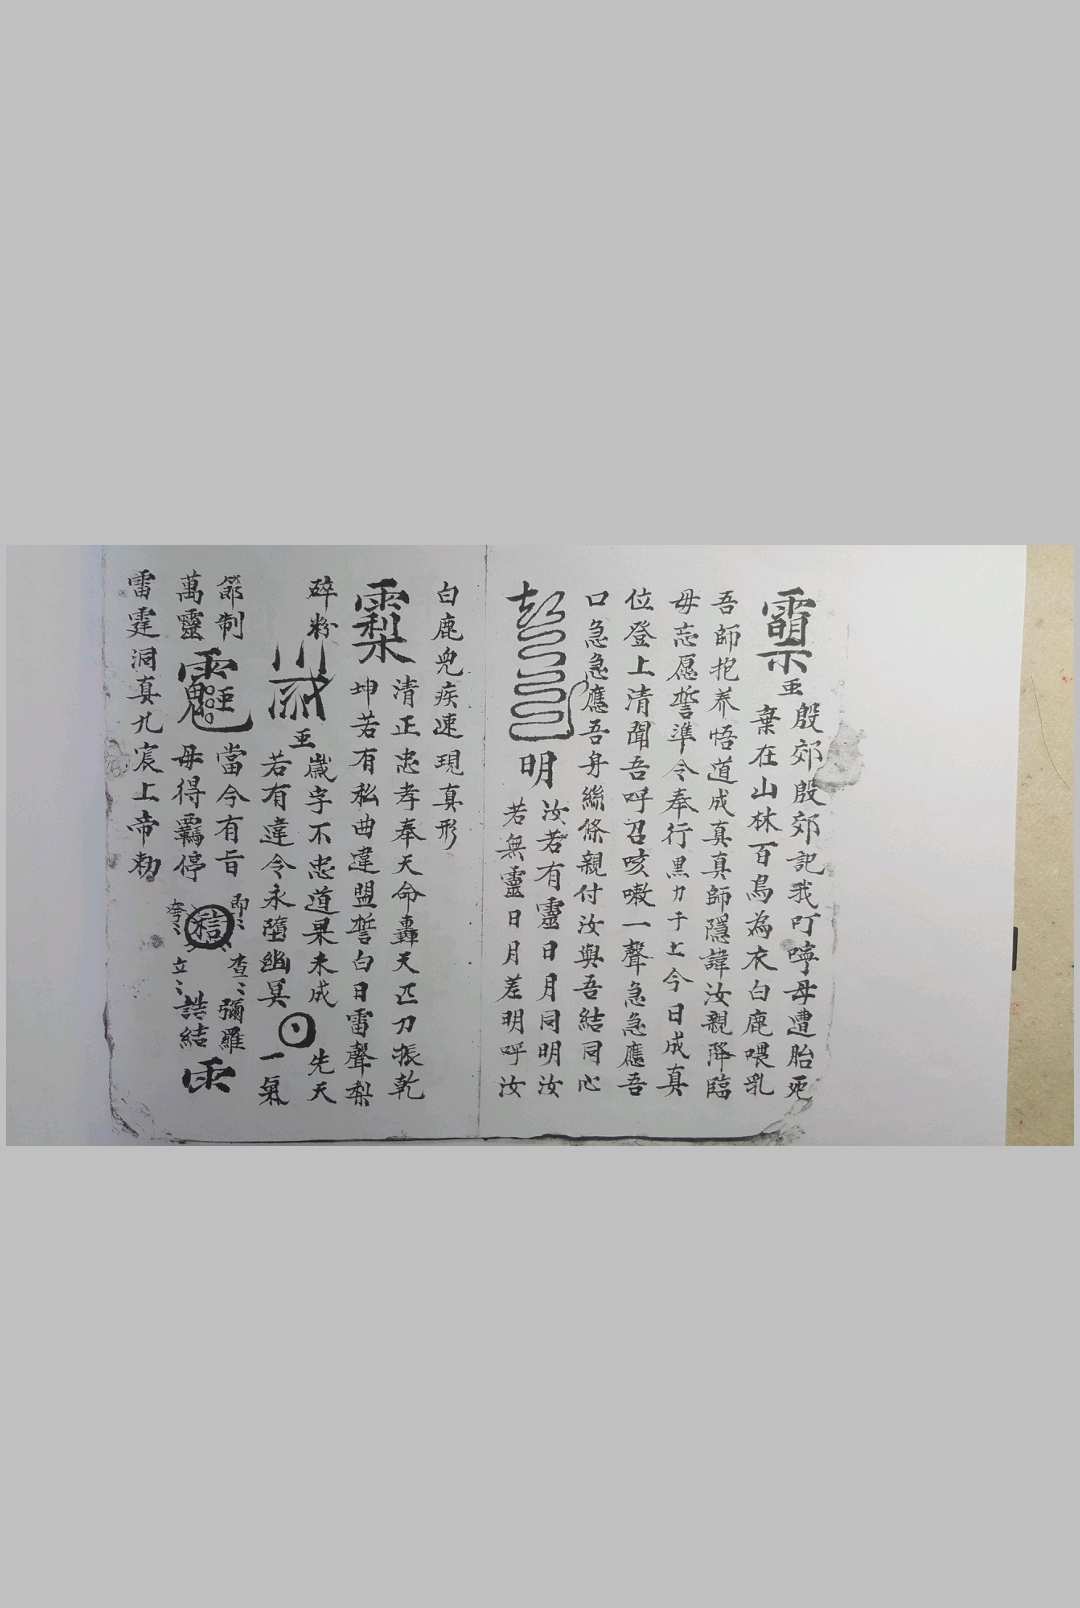 殷郊殷郊記我叮嚀母遭胎死
棄在山林百鳥為衣白鹿喂乳
吾師抱养悟道成真真師隱諱汝親降臨
毋忘愿誓準令奉行黑力于上今日成真
位登上清聞吾呼召咳嗷一聲急急應吾
口急急應吾身絲條親付汝與吾結同心
明
汝若有靈日月同明汝
若無靈日月差明呼汝
白鹿兒疾速現真形
清正忠孝奉天命轟天匹刀振乾
坤若有私曲違盟誓白日雷聲梨
碎粉
歲字不忠道果未成
若有違令永墮幽冥
先天
一氣
節制
萬靈
當今有旨
毋得羈停
即
查
立
彌羅
誥結
雷霆洞真九宸上帝勑